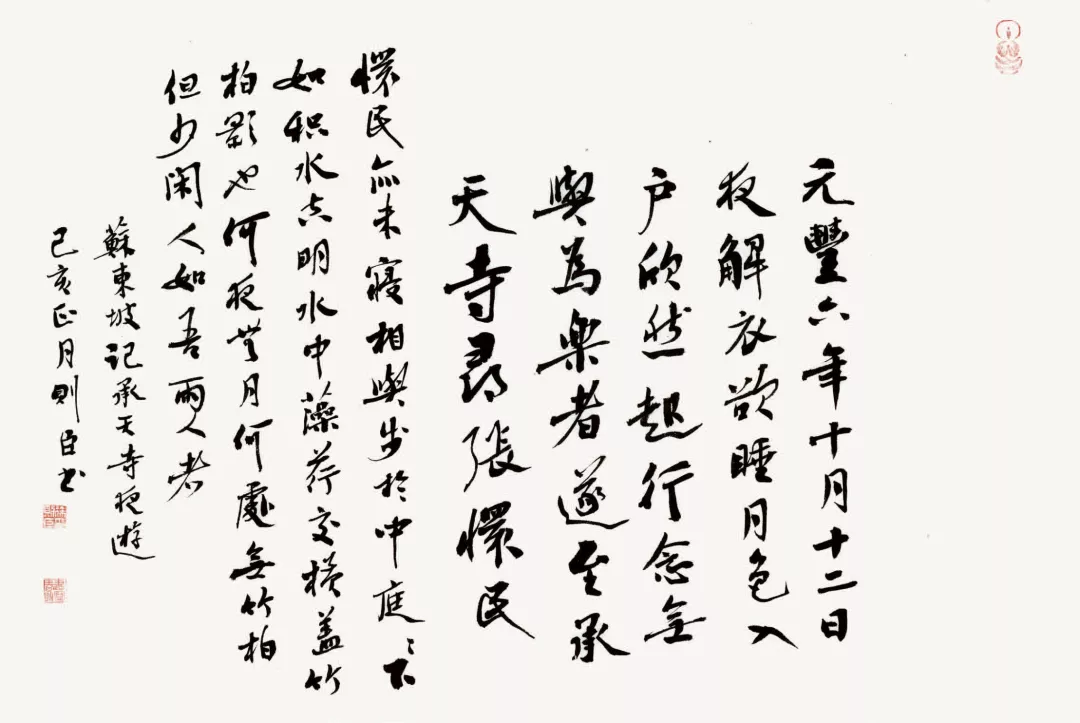 元豐六年十月十二日
夜解衣欲睡月色入
户欣然起行念無
與為樂者遂至承
天寺尋張懷民
懷民亦未寢相與步於中庭〻下
如积水空明水中藻荇交橫蓋竹
柏影也何夜無月何處無竹柏
但少閑人如吾兩人者
蘇東坡記承天寺夜遊
己亥正月則臣书